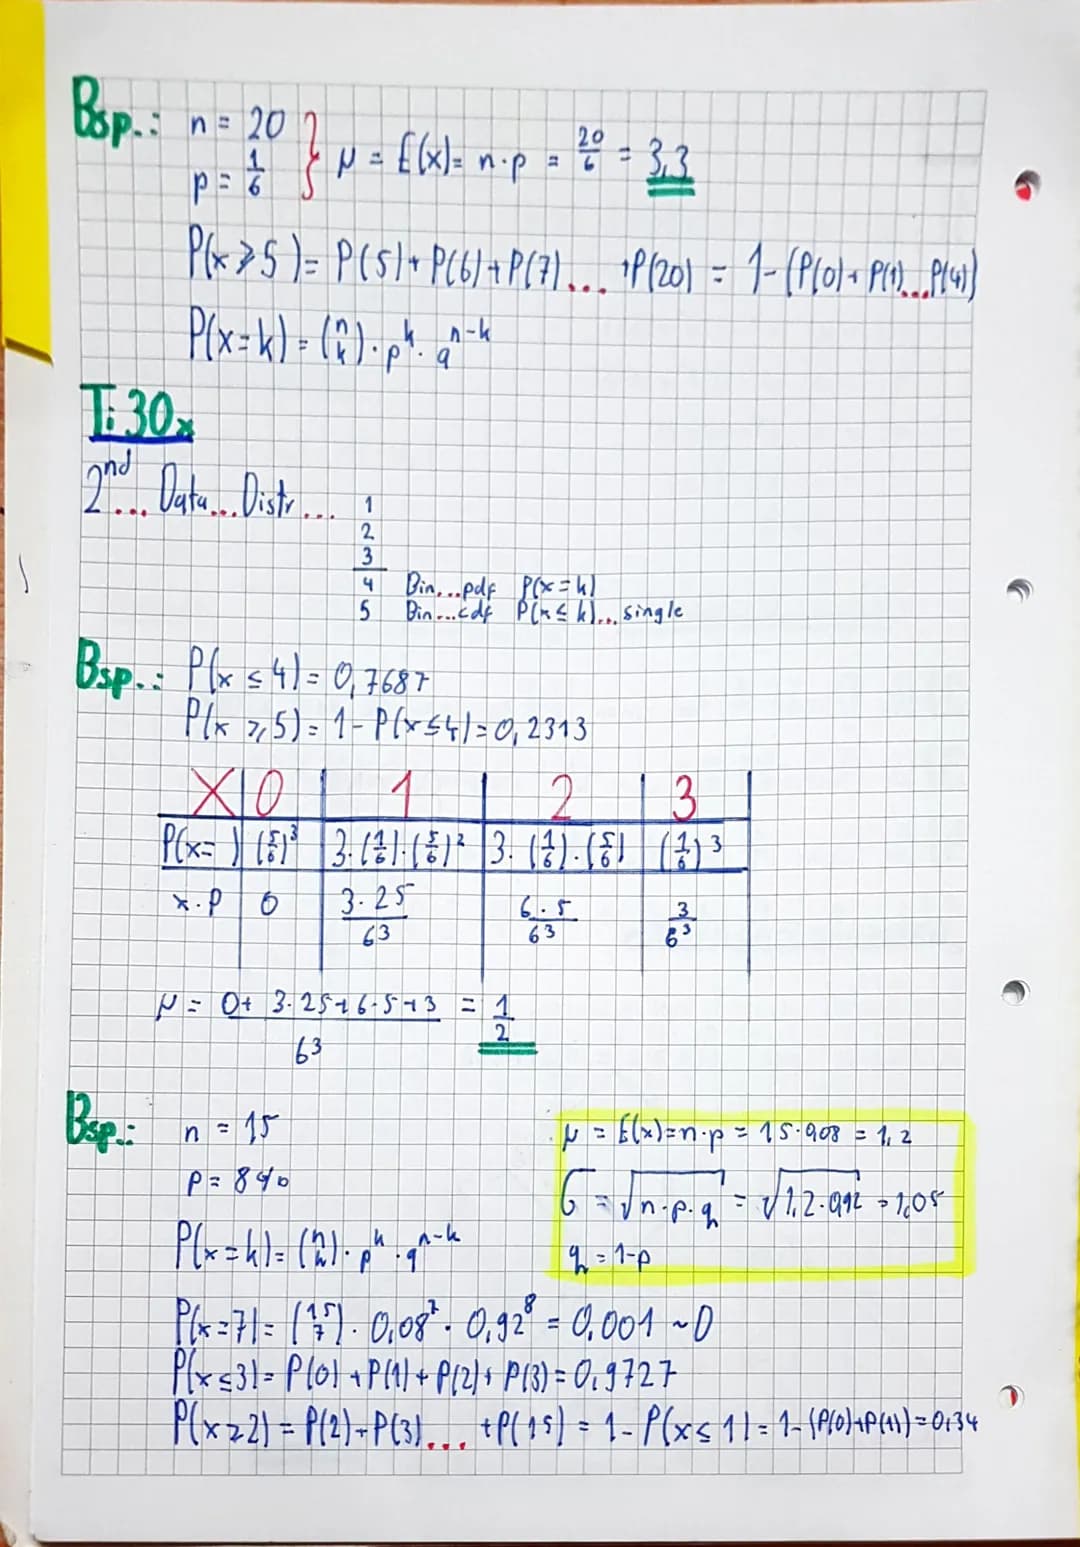 Bsp.: n = 20
p = 1/6 } μ = E(x) = n·p = 20/6 = 3,3
P(x ≥ 5) = P(5) + P(6) + P(7) ... +P(20) = 1-(P(0)+P(1)...P(4))
P(x=k) = (n k) · p^k · q^n-k
Ti 30x
2nd ... Data ... Distr ... 1
2
3
4 Bin...pdf P(x=k)
5 Bin...cdf P(x≤k)... single
Bsp.: P(x ≤ 4) = 0,7687
P(x ≥ 5) = 1 - P(x≤4) = 0,2313
X 0 1 2 3
P(x= ) (5/6)^3 3·(1/6)·(5/6)^2 3·(1/6)·(5/6) (1/6)^3
x·P 0 3·25/6^3 6·5/6^3 3/6^3
μ = 0+ 3·25+6·5+3 / 6^3 = 1/2
Bsp.: n = 15
p = 8%
P(x=k) = (n k) · p^k · q^n-k
μ = E(x)=n·p = 15·0,08 = 1,2
σ = √n·p·q = √1,2·0,92 = 1,05
q = 1-p
P(x=7) = (15 7) · 0,08^7 · 0,92^8 = 0,001 ~0
P(x≤3) = P(0) + P(1) + P(2) + P(3) = 0,9727
P(x≥2) = P(2)+P(3)... +P(15) = 1 - P(x≤1) = 1-(P(0)+P(1)) = 0,34